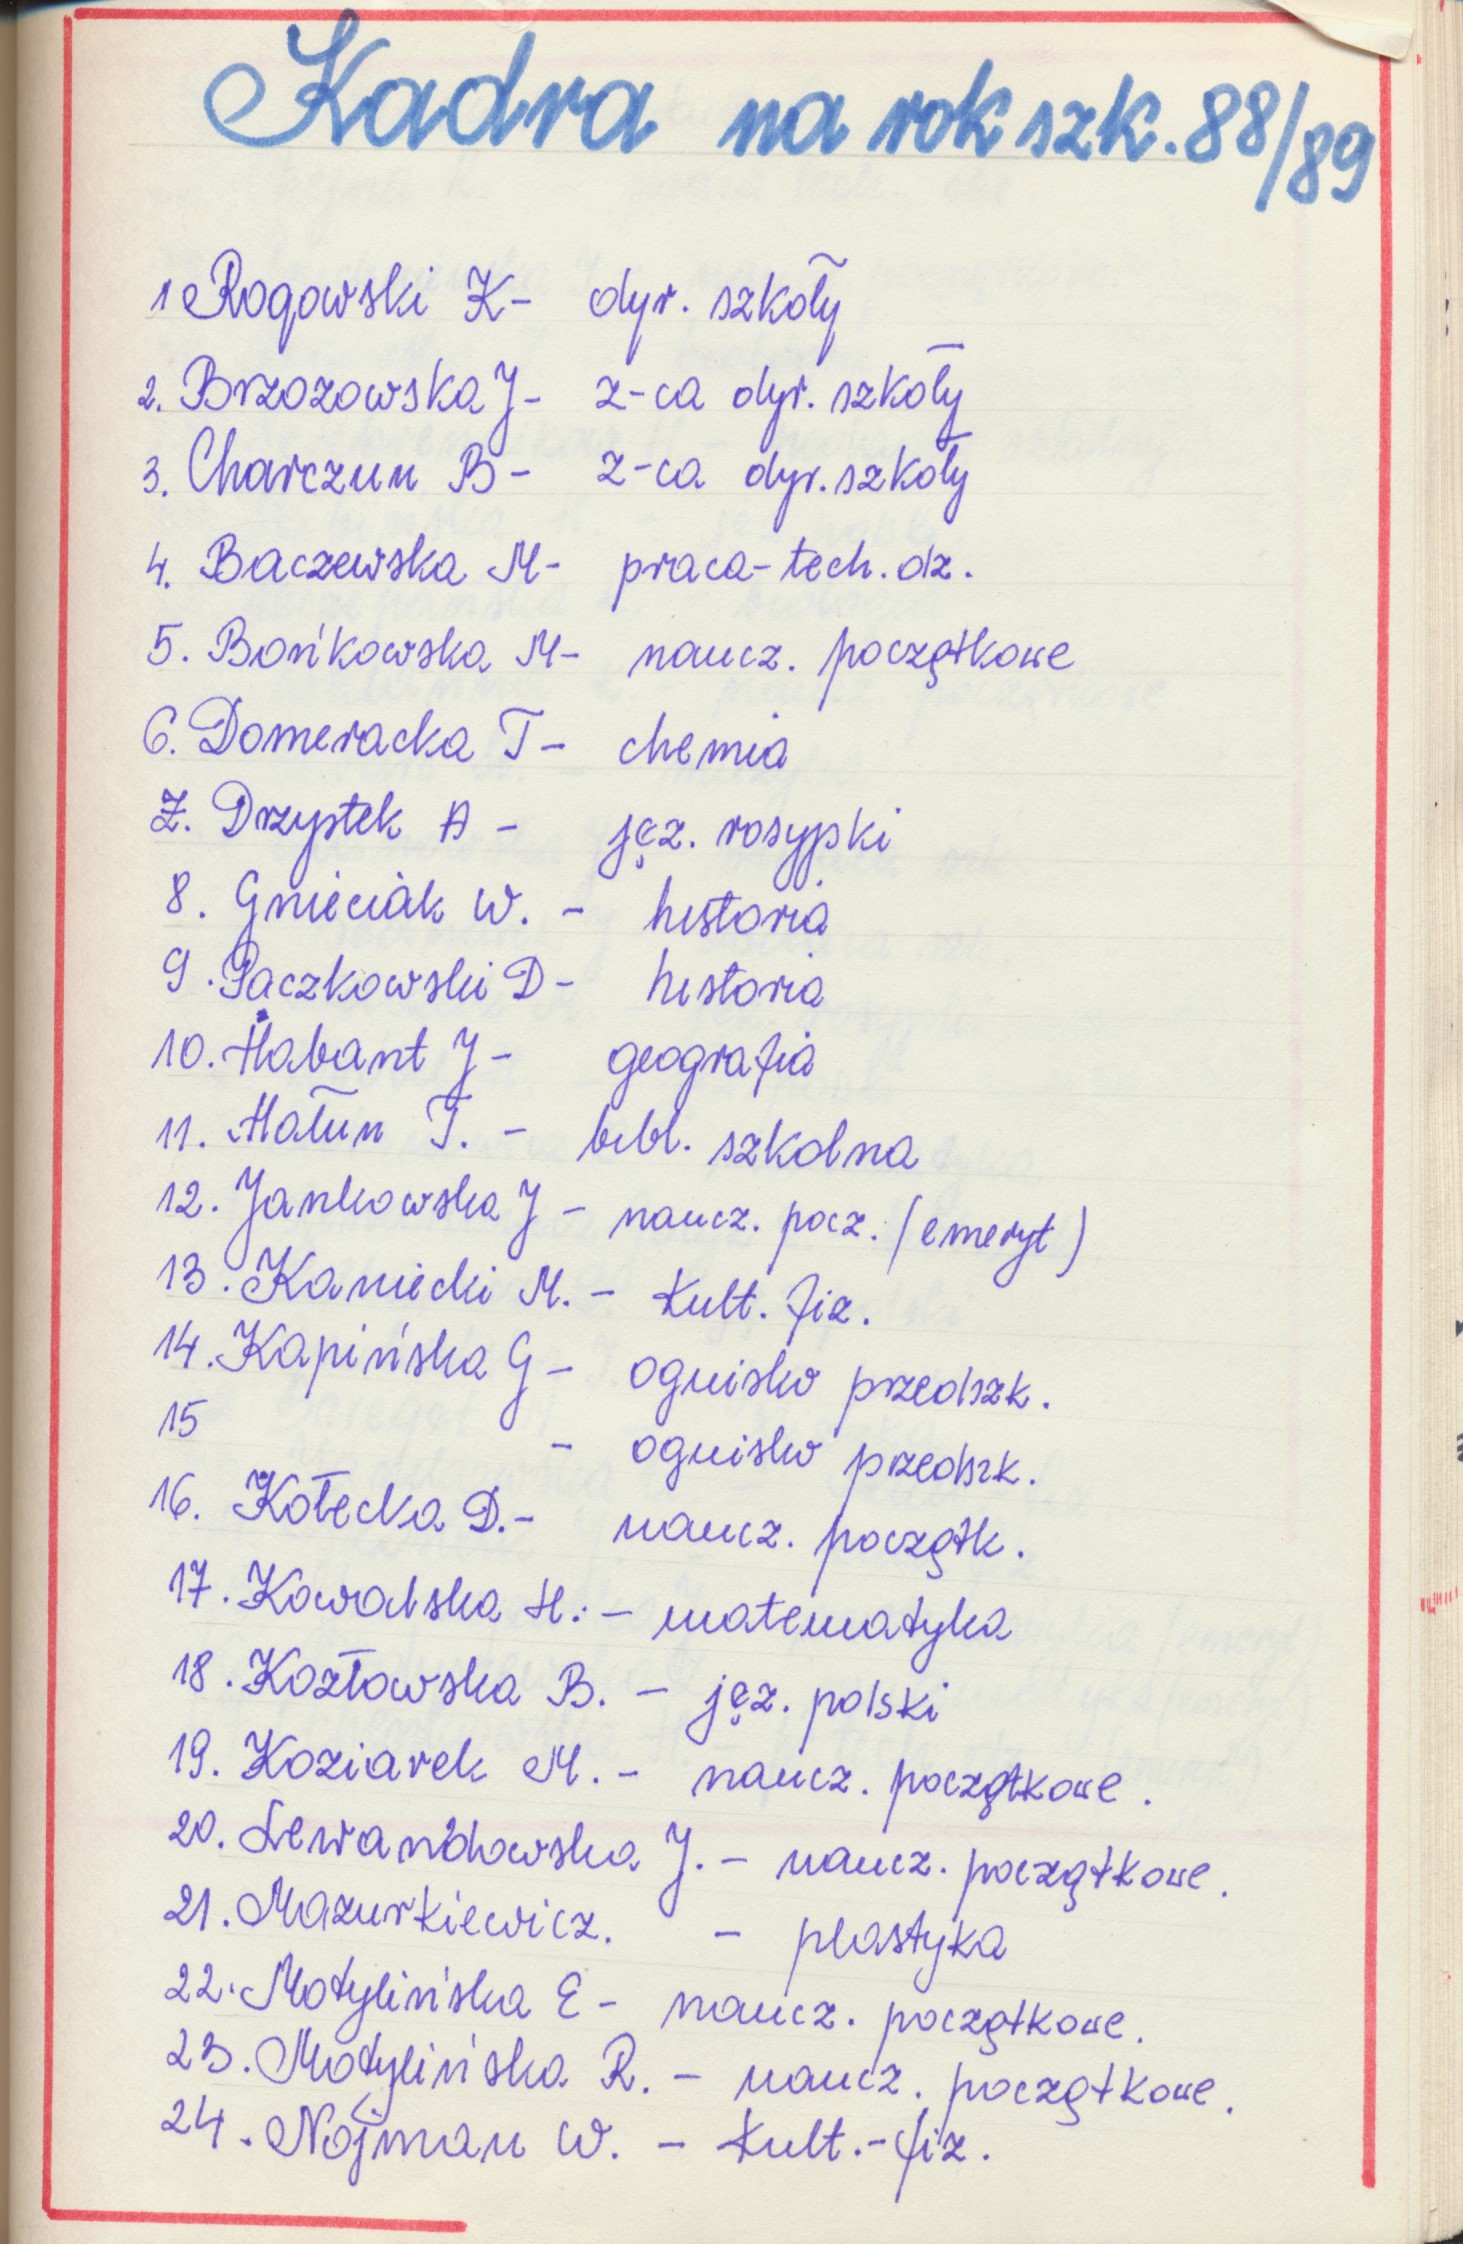 Kadra na rok szk. 88/89
1 Rogowski K- dyr. szkoły
2. Brzozowska J- z-ca dyr. szkoły
3. Charczun B- z-ca dyr. szkoły
4. Baczewska M- praca-tech. dz.
5. Bońkowska M- naucz. początkowe
6. Domeracka T- chemia
7. Drzystek A - jęz. rosyjski
8. Gnieciak W. - historia
9. Pączkowski D- historia
10. Habant J- geografia
11. Hałun T. - bibl. szkolna
12. Jankowska J - naucz. pocz. (emeryt)
13. Kaniecki M. - kult. fiz.
14. Kapińska G - ognisko przedszk.
15 - ognisko przedszk.
16. Kołecka D.- naucz. początk.
17. Kowalska H. - matematyka
18. Kozłowska B. - jęz. polski
19. Koziarek M. - naucz. początkowe.
20. Lewandowska J. - naucz. początkowe.
21. Mazurkiewicz. - plastyka
22. Motylińska E - naucz. początkowe.
23. Motylińska R. - naucz. początkowe.
24. Nojman W. - kult.-fiz.